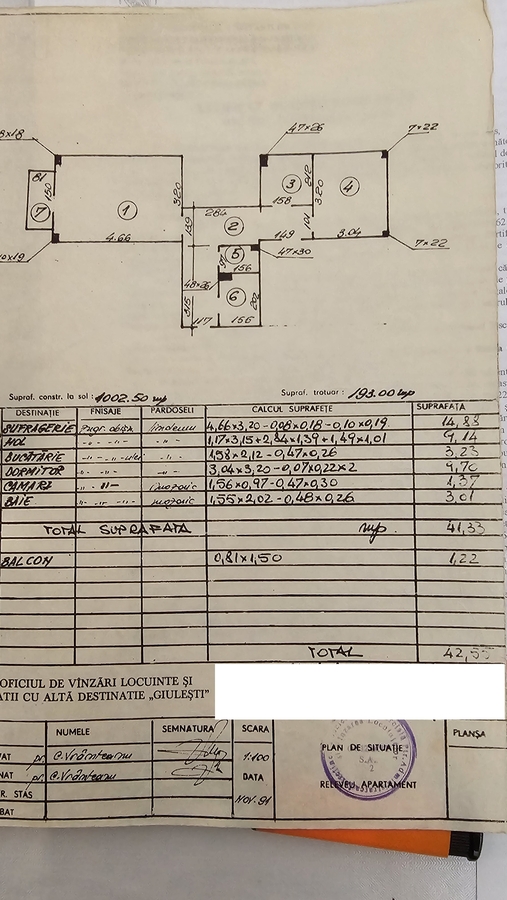 8x18
47x26
7x22
81
150
7
1
4.66
320
284
2
139
3
212
158
320
4
101
149
3.04
47x30
7x22
10x19
5
97
156
48x26
6
202
315
117
155
Supraf. constr. la sol : 1002.50 mp Supraf. trotuar : 193.00 mp
DESTINAȚIE FNISAJE PARDOSELI CALCUL SUPRAFEȚE SUPRAFAȚA
SUFRAGERIE zugr. obișn linoleum 4,66x3,20-0,08x0,18-0,10x0,19 14,88
HOL -"- -"- -"- 1,17x3,15+2,84x1,39+1,49x1,01 9,14
BUCĂTĂRIE -"- -"- ulei -"- 1,58x2,12-0,47x0,26 3,23
DORMITOR -"- -"- -"- 3,04x3,20-0,07x0,22x2 9,70
CĂMARĂ -"- -"- mozaic 1,56x0,97-0,47x0,30 1,37
BAIE -"- -"- -"- mozaic 1,55x2,02-0,48x0,26 3,01
TOTAL SUPRAFAȚA mp 41,33
BALCON 0,81x1,50 1,22
TOTAL 42,55
OFICIUL DE VÎNZĂRI LOCUINTE ȘI
ATII CU ALTĂ DESTINATIE „GIULEȘTI”
NUMELE SEMNATURA SCARA PLANȘA
VAT pr. C. Vrânteanu 1:100
PLAN DE SITUAȚIE
S.A.
2
NAT pr. C. Vrânteanu DATA
RELEVEU APARTAMENT
R. STAS NOV. 91
BAT